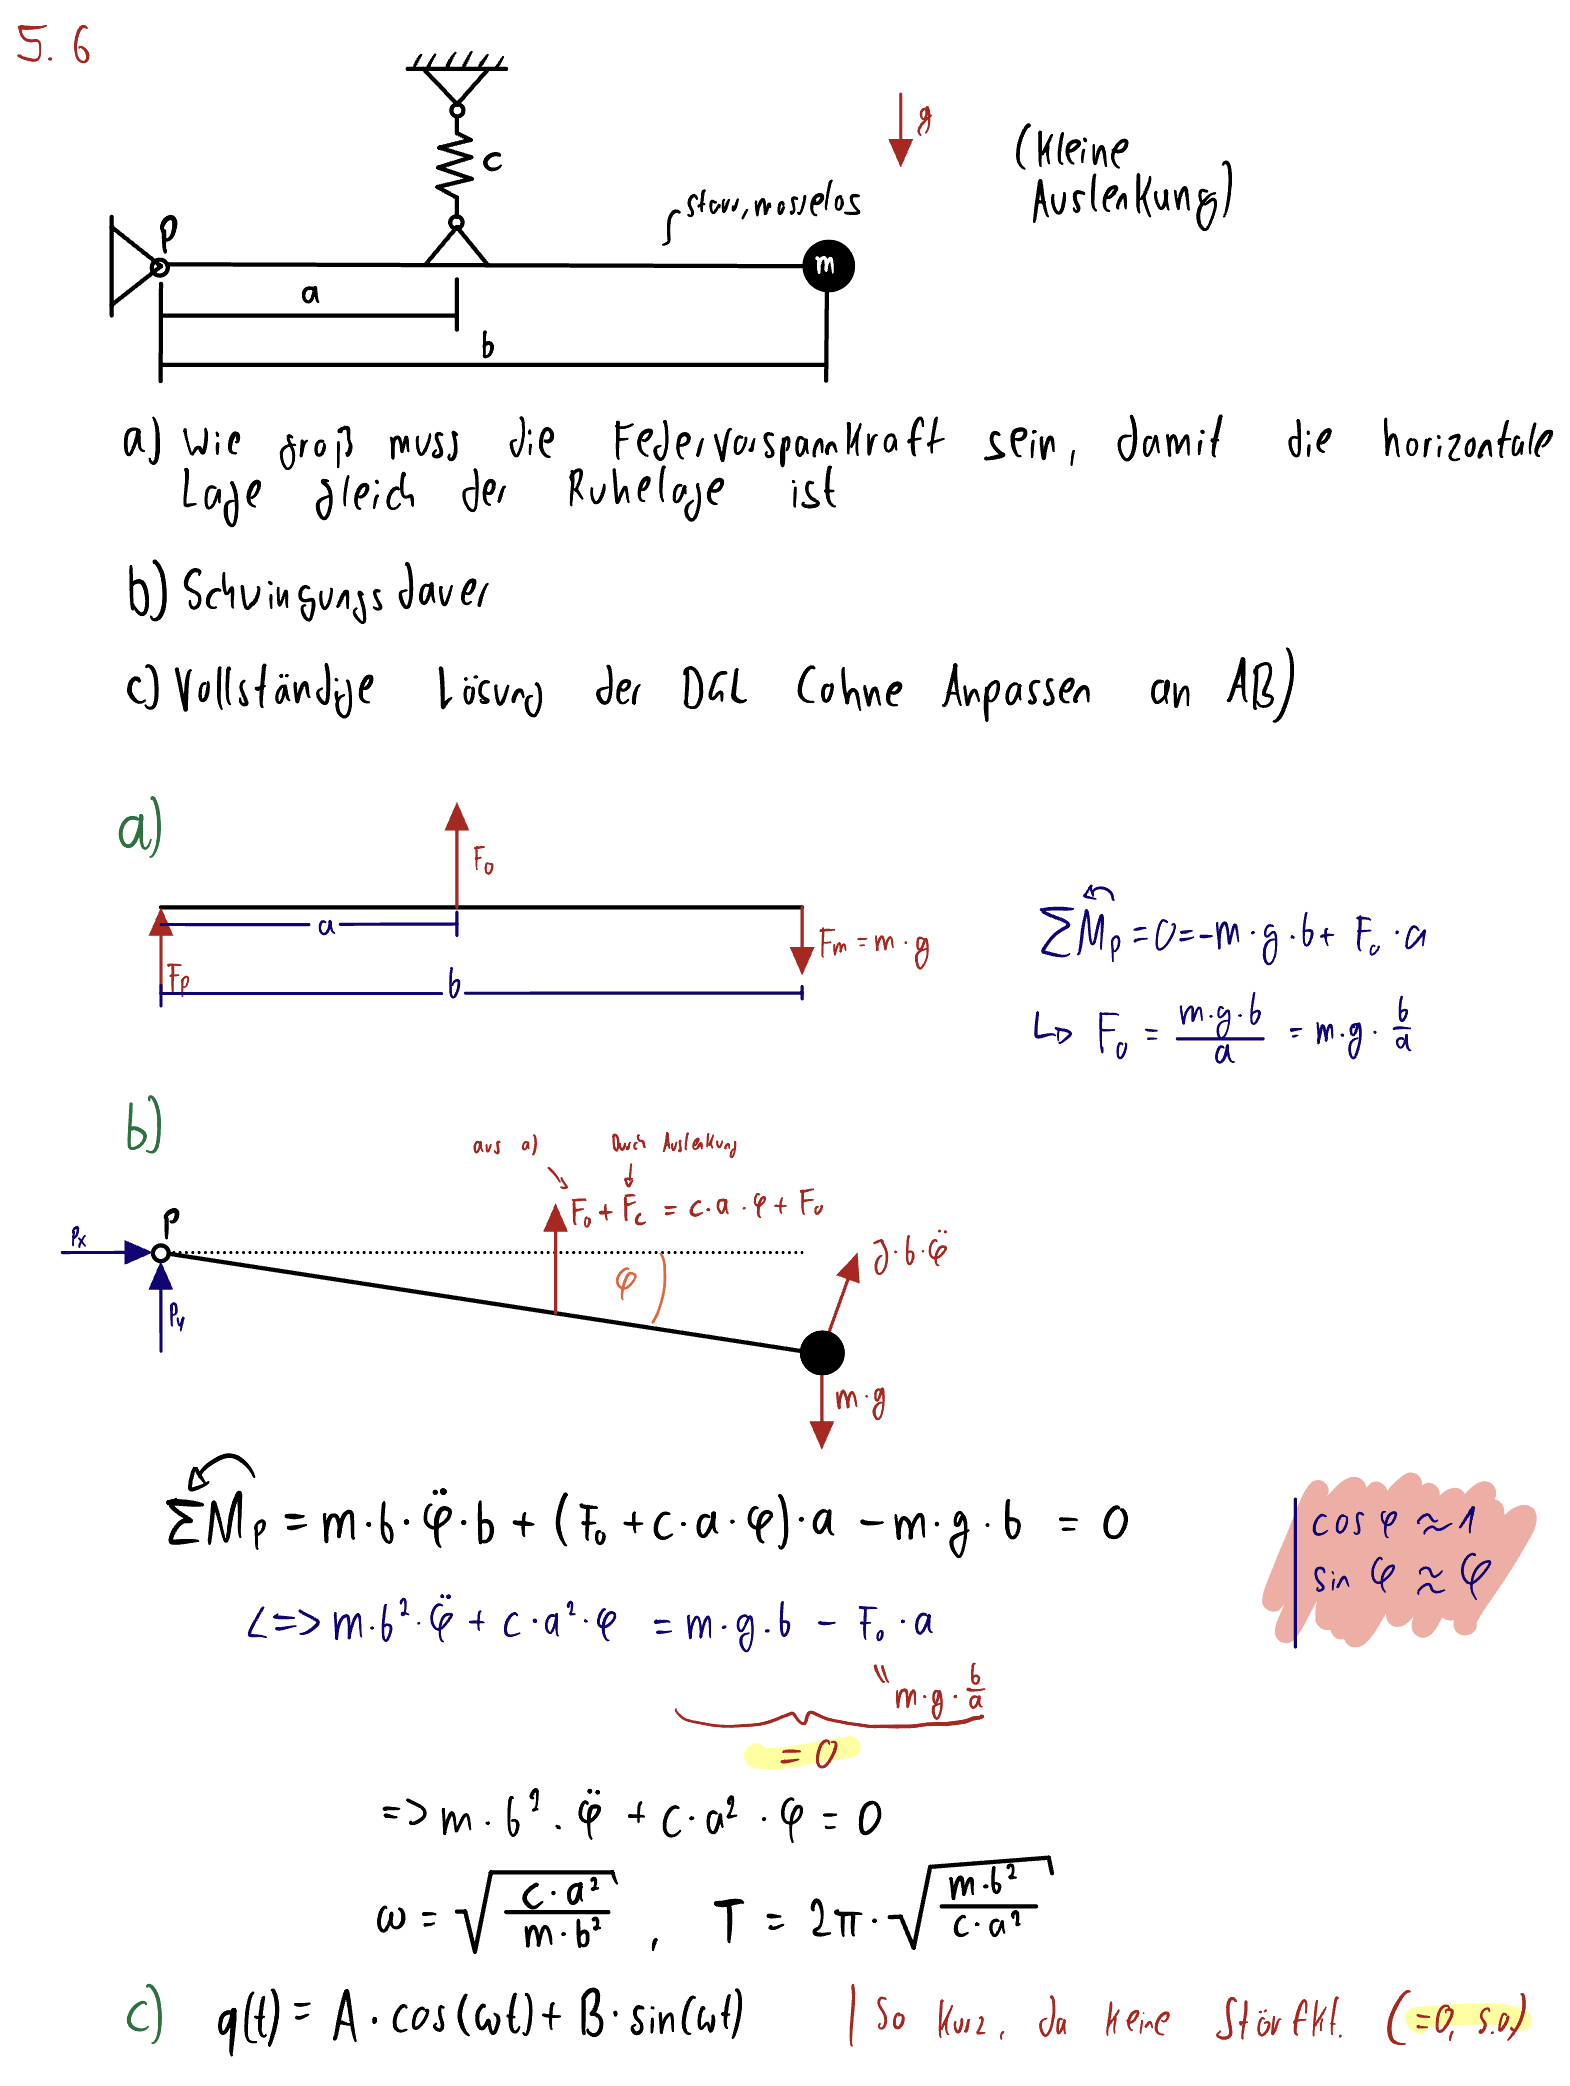 5.6
g
(Kleine
Auslenkung)
c
starr, masselos
P
m
a
b
a) Wie groß muss die Federvorspannkraft sein, damit die horizontale
Lage gleich der Ruhelage ist
b) Schwingungsdauer
c) Vollständige Lösung der DGL (ohne Anpassen an AB)
a)
F₀
a
F_m = m · g
F_p
b
ΣM_p = 0 = -m · g · b + F₀ · a
↳ F₀ = m·g·b / a = m·g · b/a
b)
aus a) Durch Auslenkung
F₀ + F_c = c · a · φ + F₀
P
P_x
P_y
φ
J · b · φ̈
m · g
ΣM_p = m · b · φ̈ · b + (F₀ + c · a · φ) · a - m · g · b = 0
cos φ ≈ 1
sin φ ≈ φ
<=> m · b² · φ̈ + c · a² · φ = m · g · b - F₀ · a
" m · g · b/a
= 0
=> m · b² · φ̈ + c · a² · φ = 0
ω = √(c · a² / m · b²) , T = 2π · √(m · b² / c · a²)
c) q(t) = A · cos(ωt) + B · sin(ωt) | So kurz, da keine Störfkt. (=0, s.o.)